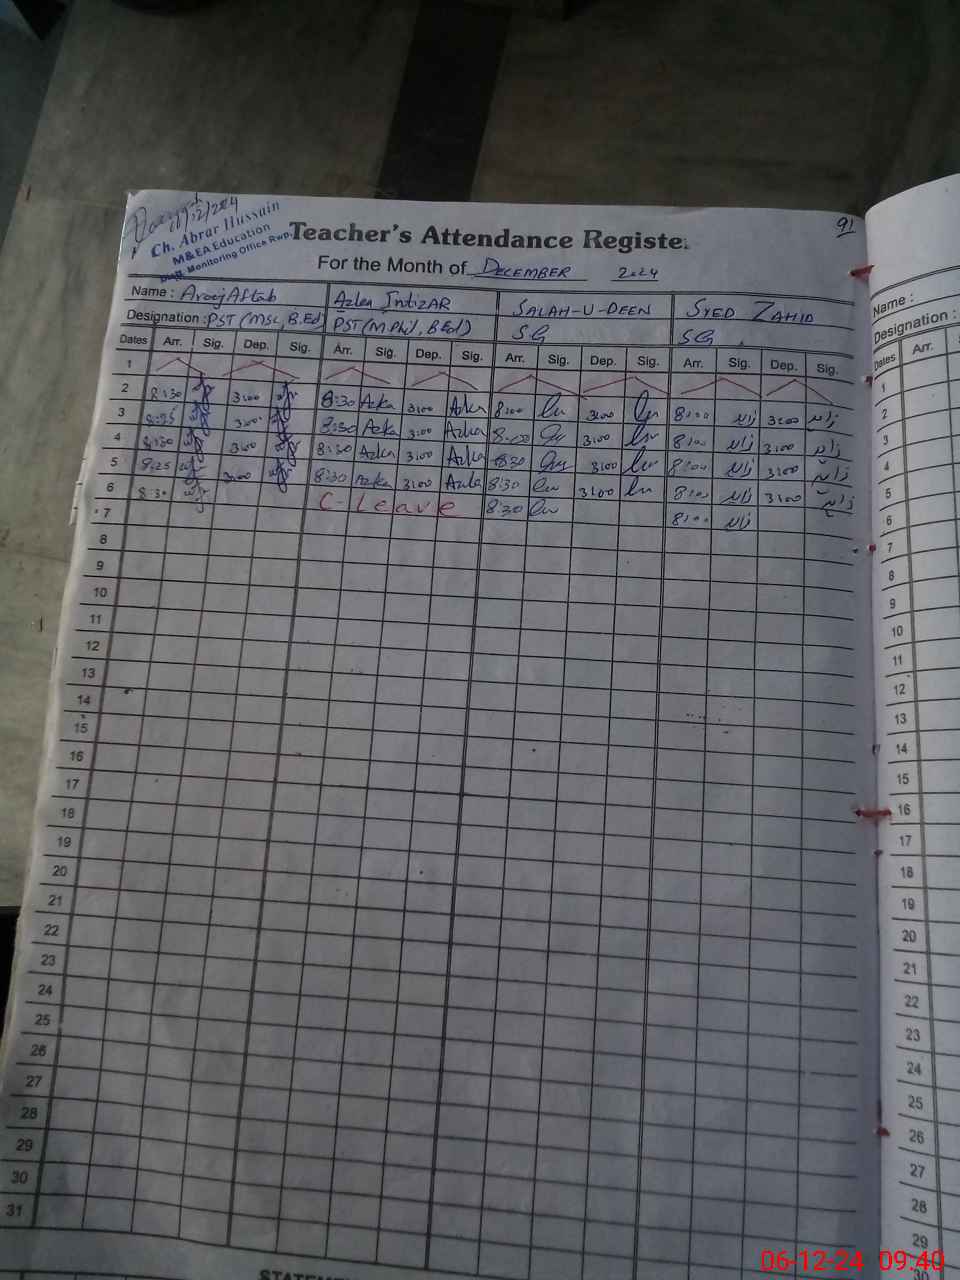 91
11/12/2024
Ch. Abrar Hussain
M&EA Education
Monitoring Office Rwp.
Teacher's Attendance Registe
For the Month of DECEMBER 2024
Name : Arooj Aftab Azka IntizAR SALAH-U-DEEN SYED ZAHID
Designation : PST (MSc, B.Ed) PST (M Phil, B.Ed) SG SG
Dates Arr. Sig. Dep. Sig. Arr. Sig. Dep. Sig. Arr. Sig. Dep. Sig. Arr. Sig. Dep. Sig.
1
2 8:30 3:00 8:30 Azka 3:00 Azka 8:00 3:00 8:00 زاہد 3:00 زاہد
3 8:25 3:00 8:30 Azka 3:00 Azka 8:00 3:00 8:00 زاہد 3:00 زاہد
4 8:30 3:00 8:30 Azka 3:00 Azka 8:30 3:00 8:00 زاہد 3:00 زاہد
5 8:25 3:00 8:30 Azka 3:00 Azka 8:30 3:00 8:00 زاہد 3:00 زاہد
6 8:30 C-Leave 8:30 8:00 زاہد
7
8
9
10
11
12
13
14
15
16
17
18
19
20
21
22
23
24
25
26
27
28
29
30
31
STATEM
Name :
Designation :
Dates Arr.
1
2
3
4
5
6
7
8
9
10
11
12
13
14
15
16
17
18
19
20
21
22
23
24
25
26
27
28
29
30
06-12-24 09:40